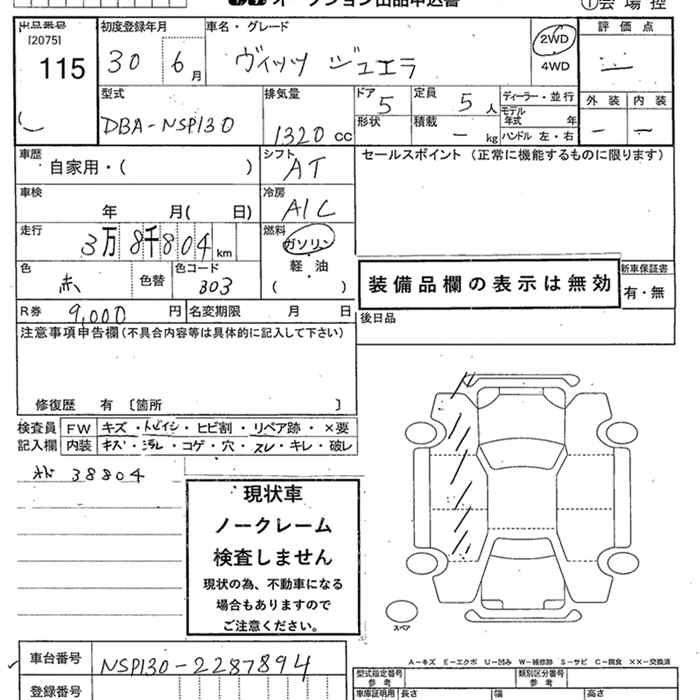 オークション出品申込書
①会場控
出品番号 初度登録年月 車名・グレード 評価点
[2075]
115
30 6月 ヴィッツ ジュエラ 2WD
4WD
型式 排気量 ドア 定員 ディーラー・並行 外装 内装
DBA-NSP130 1320cc 5 5人
モデル年式 年
形状 積載 kg ハンドル 左・右
車歴 シフト セールスポイント(正常に機能するものに限ります)
自家用・( ) AT
車検 冷房
年 月( 日) A/C
走行 燃料
3万8千804km ガソリン
色 色替 色コード 軽・油
赤 303 ( )
装備品欄の表示は無効
新車保証書
有・無
R券 9,000円 名変期限 月 日 後日品
注意事項申告欄(不具合内容等は具体的に記入して下さい)
修復歴 有 〔箇所 〕
検査員 FW キズ・トビイシ・ヒビ割・リペア跡・×要
記入欄 内装 キズ・汚レ・コゲ・穴・スレ・キレ・破レ
38804
現状車
ノークレーム
検査しません
現状の為、不動車になる
場合もありますので
ご注意ください。
スペア
車台番号 NSP130-2287894
A-キズ E-エクボ U-凹み W-補修跡 S-サビ C-腐食 ××-交換済
登録番号
型式指定番号 参考 類別区分番号 参考
車庫証明用 長さ 幅 高さ